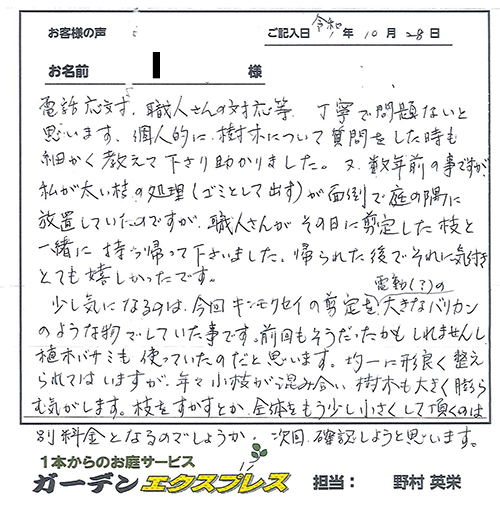 お客様の声　ご記入日 令和 年 10 月 28 日
お名前　様
電話応対、職人さんの対応等、丁寧で問題ないと
思います。個人的に、樹木について質問をした時も
細かく教えて下さり助かりました。又、数年前の事ですが、
私が太い枝の処理(ゴミとして出す)が面倒で庭の隅に
放置していたのですが、職人さんがその日に剪定した枝と
一緒に持ち帰って下さいました。帰られた後でそれに気付き
とても嬉しかったです。
電動(?)の
少し気になるのは、今回キンモクセイの剪定を大きなバリカン
のような物でしていた事です。前回もそうだったかもしれませんし
植木バサミも使っていたのだと思います。均一に形良く整え
られてはいますが、年々小枝が混み合い、樹木も大きく膨ら
む気がします。枝をすかすとか、全体をもう少し小さくして頂くのは
別料金となるのでしょうか、次回、確認しようと思います。
1本からのお庭サービス
ガーデンエクスプレス　担当:　野村 英栄